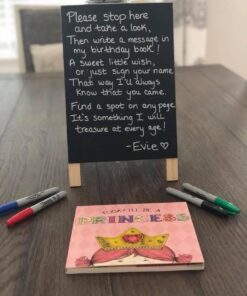 Please stop here
and take a look,
Then write a message in
my birthday book!
A sweet little wish,
or just sign your name
That way I'll always
know that you came.
Find a spot on any page
It's something I will
treasure at every age!
-Evie ♡
TODAY I'LL BE A
PRINCESS